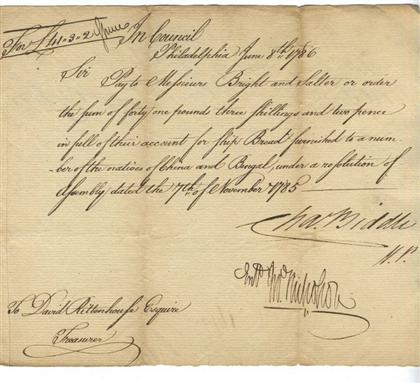 For £41-3-2 Specie In Council
Philadelphia June 8th 1786
Sir
Pay to Messieurs Bright and Salter or order
the sum of forty one pounds three shillings and two pence
in full of their account for Ship Bread furnished to a num-
ber of the natives of China and Bengal, under a resolution of
Assembly dated the 7th of November 1785
Chas. Biddle
V.P.
Jno Nicholson
To David Rittenhouse Esquire
Treasurer